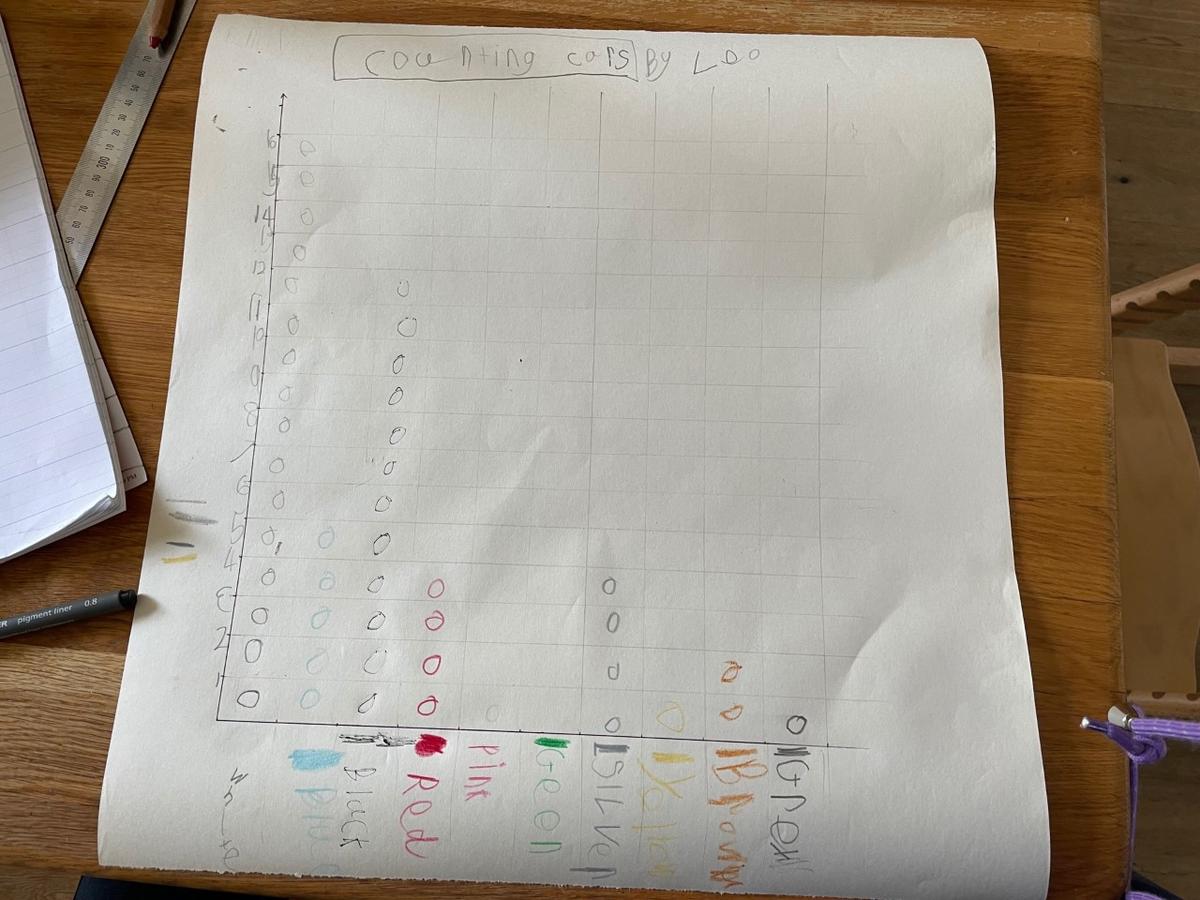 Counting cars By Leo
6
15
14
12
11
10
9
8
7
6
5
4
3
2
1
Blue
Black
Red
Pink
Geen
SILVer
Yellow
Brown
Grey
pigment liner 0.8
300